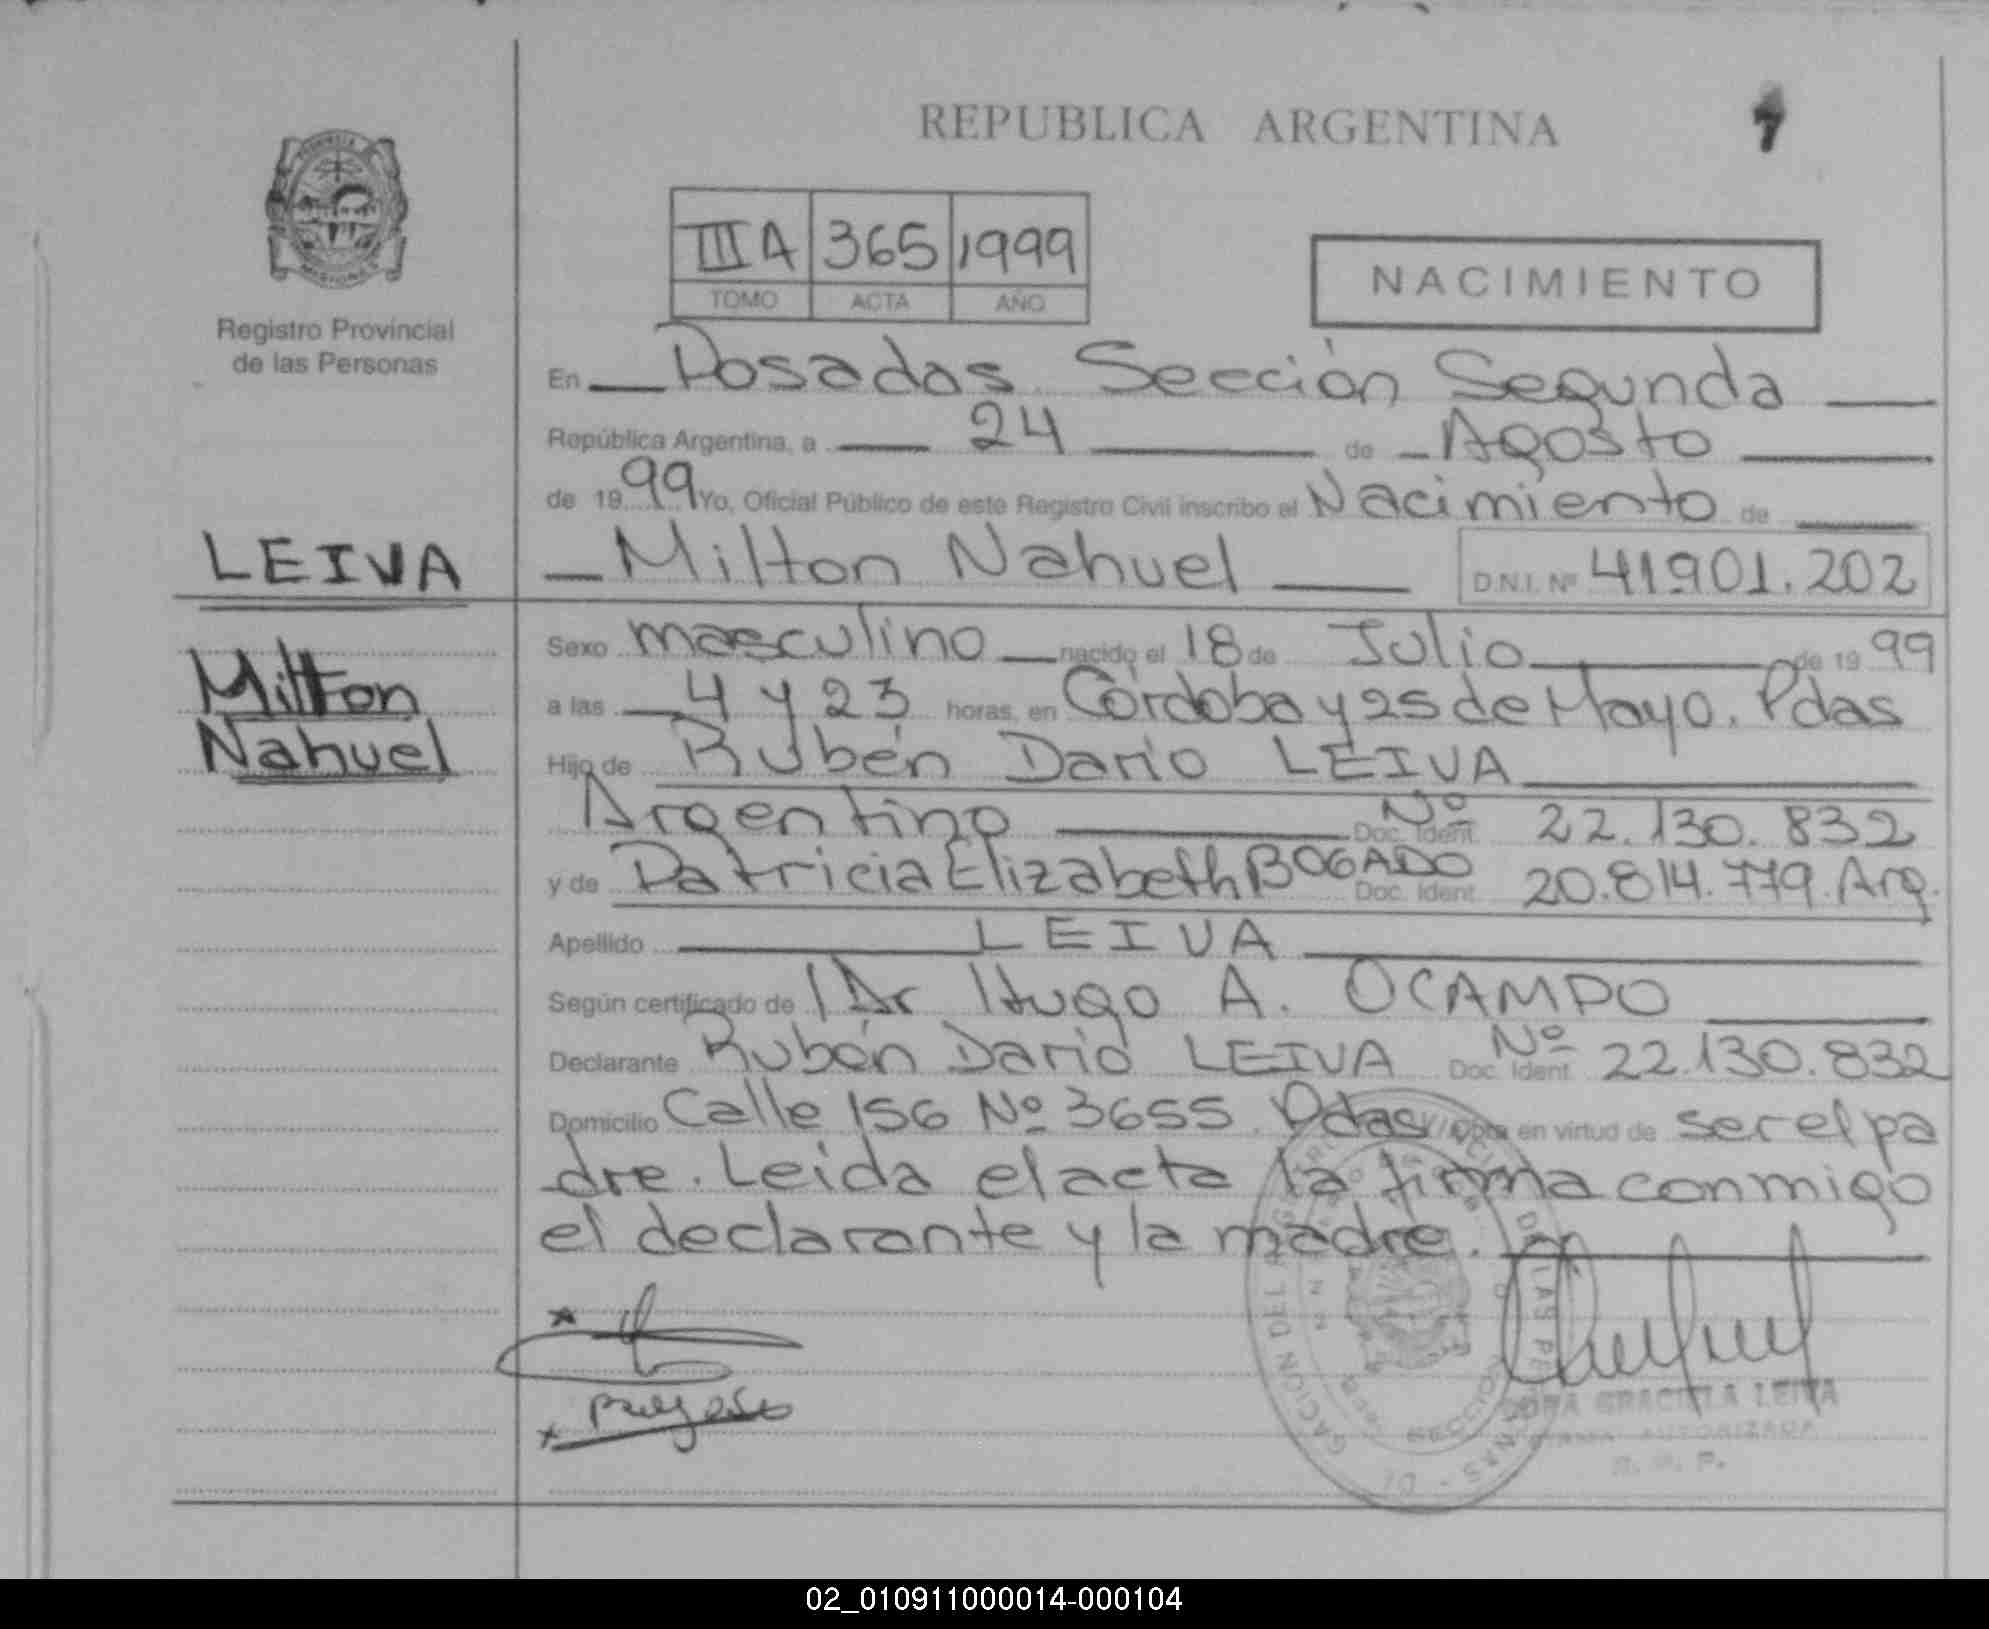 REPUBLICA ARGENTINA
Registro Provincial
de las Personas
IIIA 365 1999
TOMO ACTA AÑO
NACIMIENTO
En Posadas Sección Segunda
República Argentina, a 24 de Agosto
de 1999 Yo, Oficial Público de este Registro Civil inscribo el Nacimiento de
LEIVA
Milton Nahuel D.N.I. Nº 41901.202
Milton
Nahuel
Sexo masculino nacido el 18 de Julio de 1999
a las 4 y 23 horas, en Córdoba y 25 de Mayo. Pdas
Hijo de Rubén Darío LEIVA
Argentino Nº Doc. Ident. 22.130.832
y de Patricia Elizabeth BOGADO Doc. Ident. 20.814.779. Arg.
Apellido LEIVA
Según certificado de Dr Hugo A. OCAMPO
Declarante Rubén Darío LEIVA Nº Doc. Ident. 22.130.832
Domicilio Calle 156 Nº 3655. Pdas en virtud de ser el pa
dre. Leida el acta la firma conmigo
el declarante y la madre.
GRACIELA LEIVA
AUTORIZADA
SECCION
02_010911000014-000104